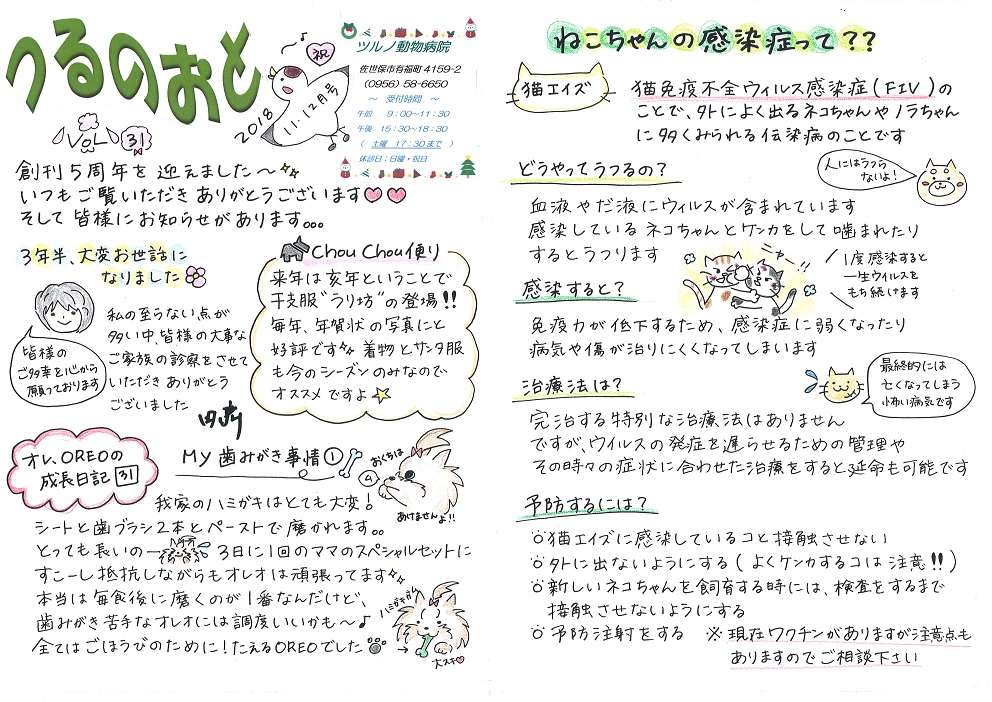 つるのおと
VOL 31
2018 11・12月号
祝
ツルノ動物病院
佐世保市有福町4159-2
(0956)58-6650
～ 受付時間 ～
午前 9：00～11：30
午後 15：30～18：30
( 土曜 17：30まで )
休診日：日曜・祝日
創刊5周年を迎えました～
いつもご覧いただきありがとうございます♡♡
そして皆様にお知らせがあります。。。
3年半、大変お世話に
なりました
私の至らない点が
多い中、皆様の大事な
ご家族の診察をさせて
いただきありがとう
ございました
皆様の
ご多幸を心から
願っております
Chou Chou便り
来年は亥年ということで
干支服"うり坊"の登場!!
毎年、年賀状の写真にと
好評です 着物とサンタ服
も今のシーズンのみなので
オススメですよ
オレ、OREOの
成長日記 31
MY歯みがき事情①
おくちは
あけませんよ!!
我家のハミガキはとても大変!
シートと歯ブラシ2本とペーストで磨かれます。。
とっても長いの 3日に1回のママのスペシャルセットに
すこーし抵抗しながらもオレオは頑張ってます
本当は毎食後に磨くのが1番なんだけど、
歯みがき苦手なオレオには調度いいかも～♪
全てはごほうびのために!たえるOREOでした
ハミガキガム
大スキ♡
ねこちゃんの感染症って??
猫エイズ
猫免疫不全ウィルス感染症(FIV)の
ことで、外によく出るネコちゃんやノラちゃん
に多くみられる伝染病のことです
どうやってうつるの?
人にはうつら
ないよ!
血液やだ液にウィルスが含まれています
感染しているネコちゃんとケンカをして噛まれたり
するとうつります
1度感染すると
一生ウイルスを
もち続けます
感染すると?
免疫力が低下するため、感染症に弱くなったり
病気や傷が治りにくくなってしまいます
治療法は?
最終的には
亡くなってしまう
怖い病気です
完治する特別な治療法はありません
ですが、ウイルスの発症を遅らせるための管理や
その時々の症状に合わせた治療をすると延命も可能です
予防するには?
猫エイズに感染しているコと接触させない
外に出ないようにする(よくケンカするコは注意!!)
新しいネコちゃんを飼育する時には、検査をするまで
接触させないようにする
予防注射をする ※現在ワクチンがありますが注意点も
ありますのでご相談下さい